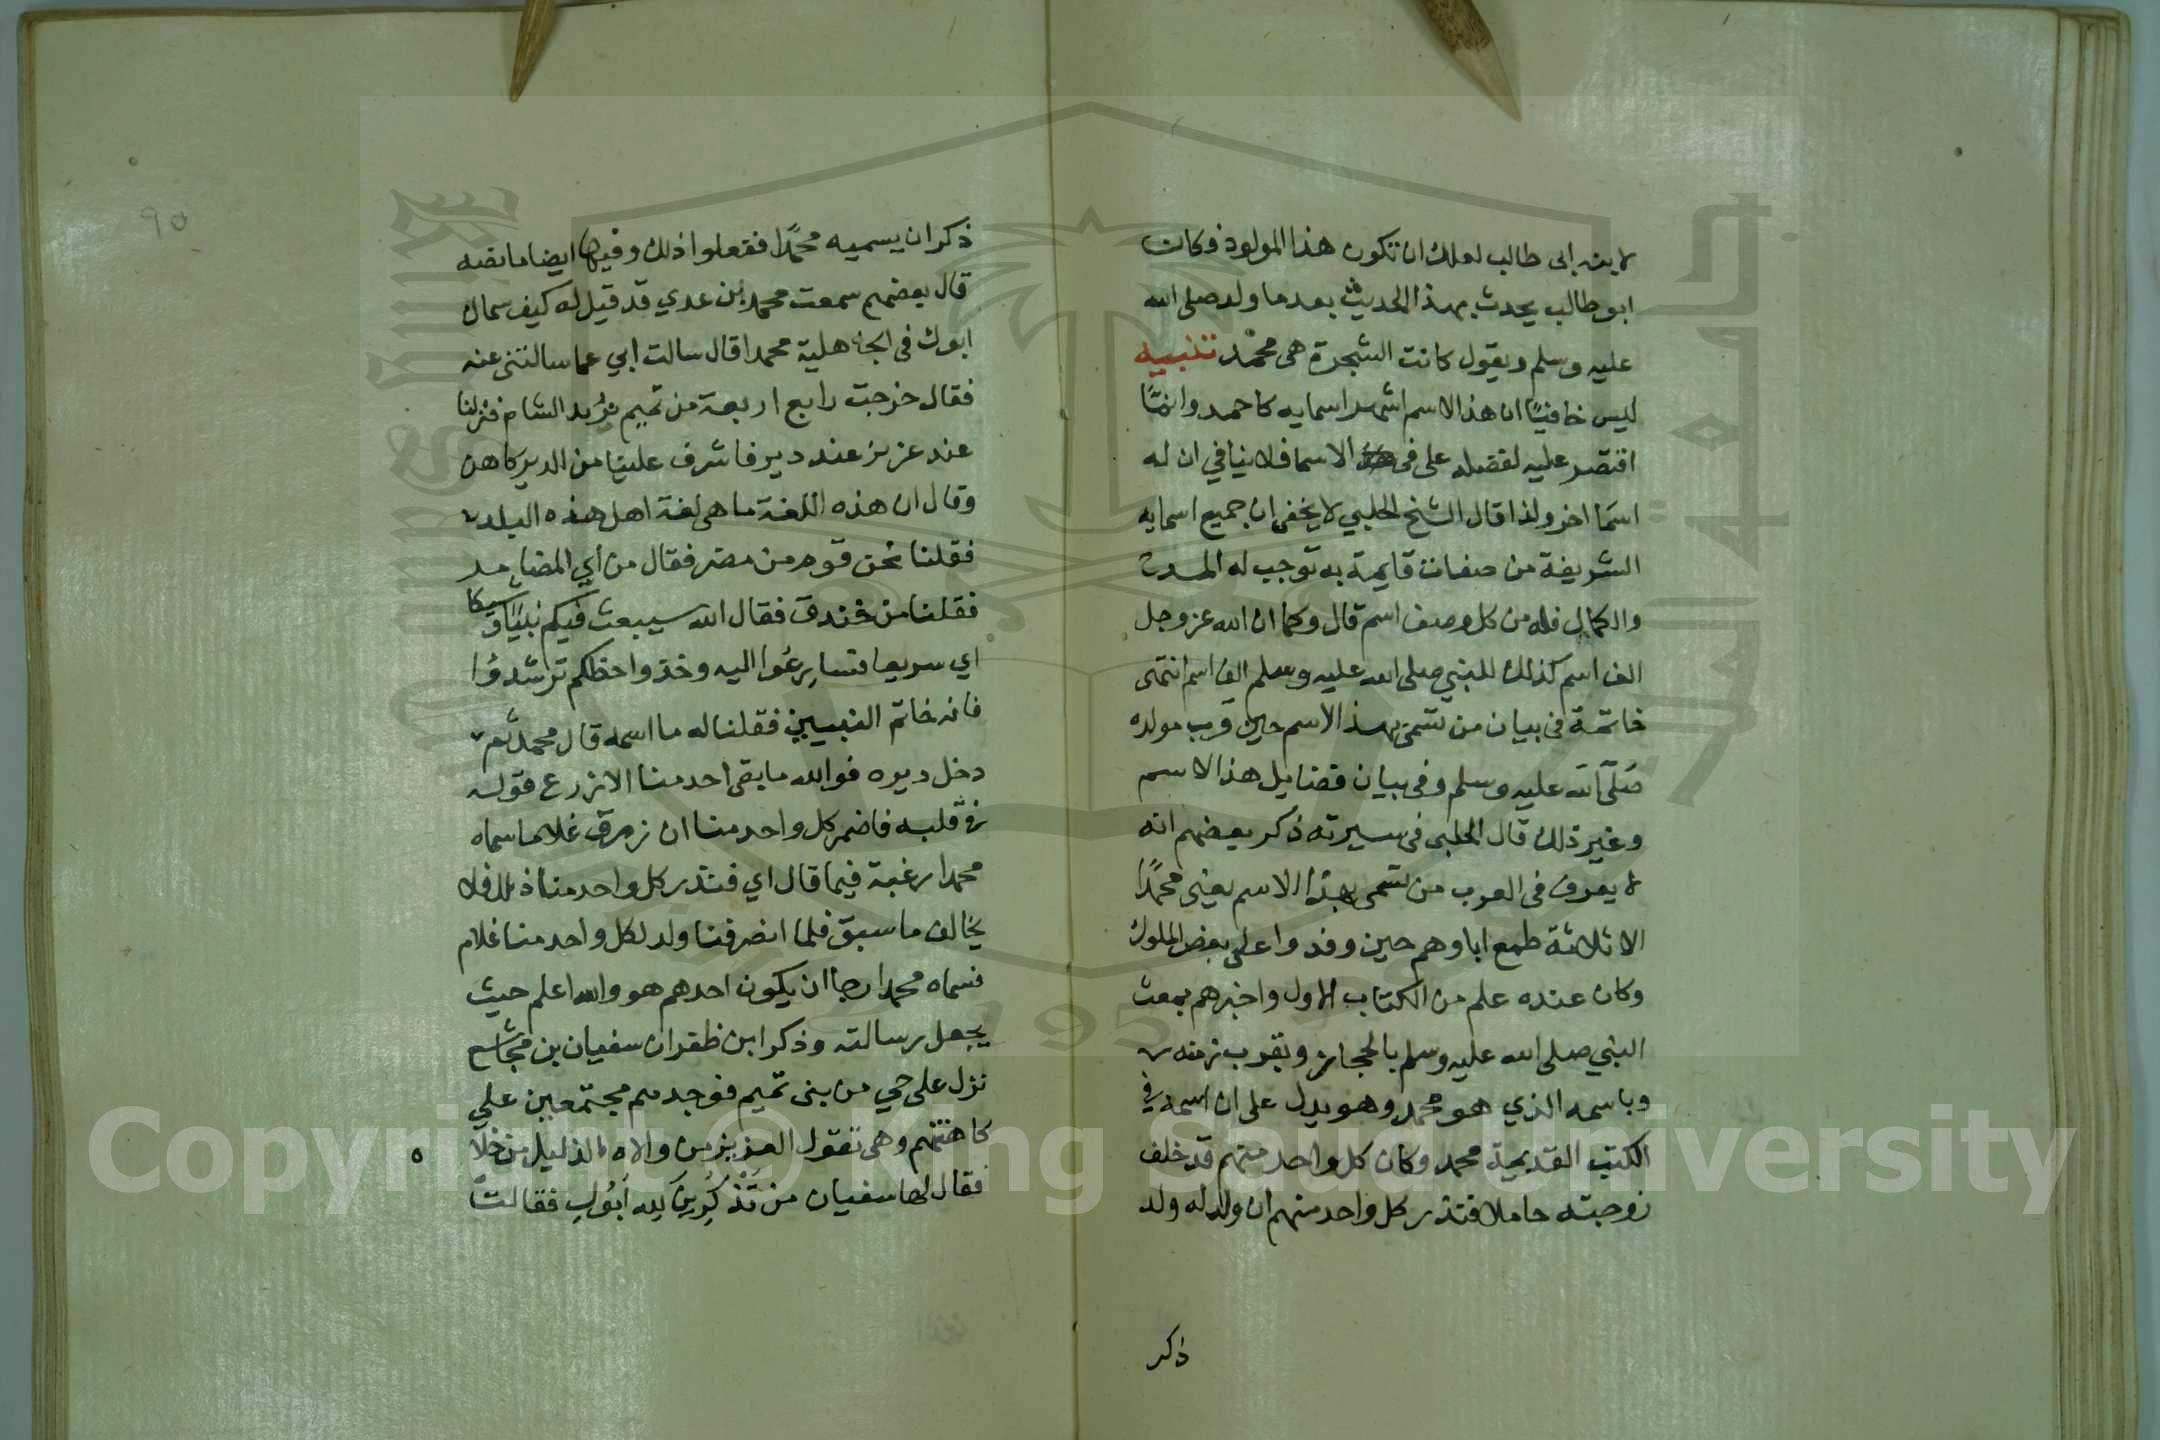 لابنه ابى طالب لعلك ان تكون هذا المولود فكان
ابو طالب يحدث بهذا الحديث بعد ما ولد صلى الله
عليه وسلم ويقول كانت الشجرة هى محمد تنبيه
ليس خافيًا ان هذا الاسم اشهر اسمايه كاحمد وانمّا
اقتصر عليه لفضله على فى الاسما فلا ينافي ان له
اسمَا اخر ولذا قال الشخ الحلبي لا يخفى ان جميع اسمايه
الشريفة من صفات قايمة به توجب له المدح
والكمال فله من كل وصف اسم قال وكما ان الله عز وجل
الف اسم كذلك للنبي صلى الله عليه وسلم الف اسم انتهى
خاتمة فى بيان من تسمى بهذ الاسم حين قرب مولده
صَلّى اللّه عليه وسلم وفى بيان فضايل هذا الاسم
وغير ذلك قال الحلبى فى سيرته ذكر بعضهم انه
لا يعرف فى العرب من تسمى بهذا الاسم يعني محمدًا
الا ثلاثة طمع اباوهم حين وفدوا على بعض الملوك
وكان عنده علم من الكتاب الاول واخبرهم بمبعث
النبي صلى الله عليه وسلم بالحجاز وبقرب زمنه
وباسمه الذي هو محمد وهو يدل على ان اسمه في
الكتب القديمة محمد وكان كل واحد منهم قد خلف
زوجته حاملا فنذر كل واحد منهم ان ولد له ولد
ذكر
٩٥
ذكر ان يسميه محمدًا ففعلوا ذلك وفيها ايضا ما نصه
قال بعضهم سمعت محمد بن عدي قد قيل له كيف سماك
ابوك فى الجاهلية محمدا قال سالت ابي عما سالتنى عنه
فقال خرجت رابع اربعة من تميم نريد الشام فنزلنا
عند غدير عند دير فاشرف علينا من الدير كاهن
وقال ان هذه اللغة ما هى لغة اهل هذه البلد
فقلنا نحن قوم من مضر فقال من أي المضاير
فقلنا من خندق فقال الله سيبعث فيكم نبيًا وشيكا
اي سريعا فسارعُوا اليه وخذوا حظكم ترشدوُا
فانه خاتم النبيين فقلنا له ما اسمه قال محمد ثم
دخل ديره فوالله ما بقى احد منا الا زرع قوله
فى قلبه فاضمر كل واحد منا ان زمرق غلاما سماه
محمدا رغبة فيما قال اي فنذر كل واحد منا ذلك فلا
يخالف ما سبق فلما انصرفنا ولد لكل واحد منا غلام
فسماه محمدا رجا ان يكون احدهم هو والله اعلم حيث
يجعل رسالته وذكر ابن ظفر ان سفيان بن مجاشع
نزل على حي من بنى تميم فوجدهم مجتمعين علي
كاهنتهم وهى تقول العزيز من والاه والذليل من خلّا
فقال لها سفيان من تَذْكُرِين لله ابُوكِ فقالت
Copyright © King Saud University
1957